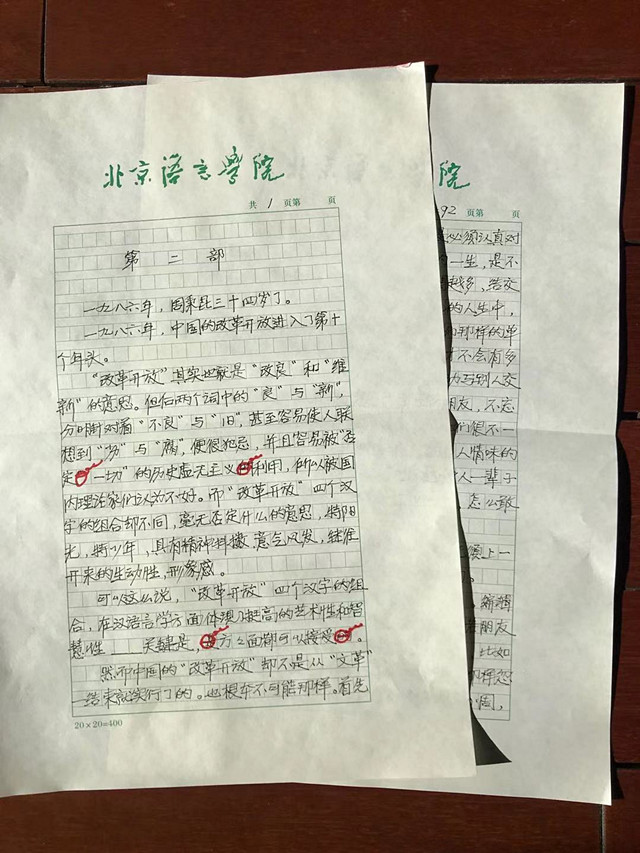 北京语言学院
共 1 页第 页
第二部
一九八六年，周秉昆三十四岁了。
一九八六年，中国的改革开放进入了第十
个年头。
"改革开放"其实也就是"改良"和"维
新"的意思。但后两个词中的"良"与"新"，
分明对着"不良"与"旧"，甚至容易使人联
想到"劣"与"腐"，便很犯忌，并且容易被"否
定一切"的历史虚无主义利用，所以被国
内理论家们认为不好。而"改革开放"四个汉
字的组合却不同，毫无否定什么的意思，特阳
光，特少年，具有精神抖擞、意气风发，继往
开来的生动性，形象感。
可以这么说，"改革开放"四个汉字的组
合，在汉语言学方面体现了挺高的艺术性和智
慧性——关键是，方方面面都可以接受。
然而中国的"改革开放"却不是从"文革"
一结束就实行了的。也根本不可能那样。首先
20×20=400
院
92 页第 页
必须认真对
一生，是不
越多，结交
的人生中，
那样的单
不会有多
与别人交
朋友，不忘
们很不一
人情味的
人一辈子
，怎么敢
上一
。
编辑
朋友
比如
那样怨
周，